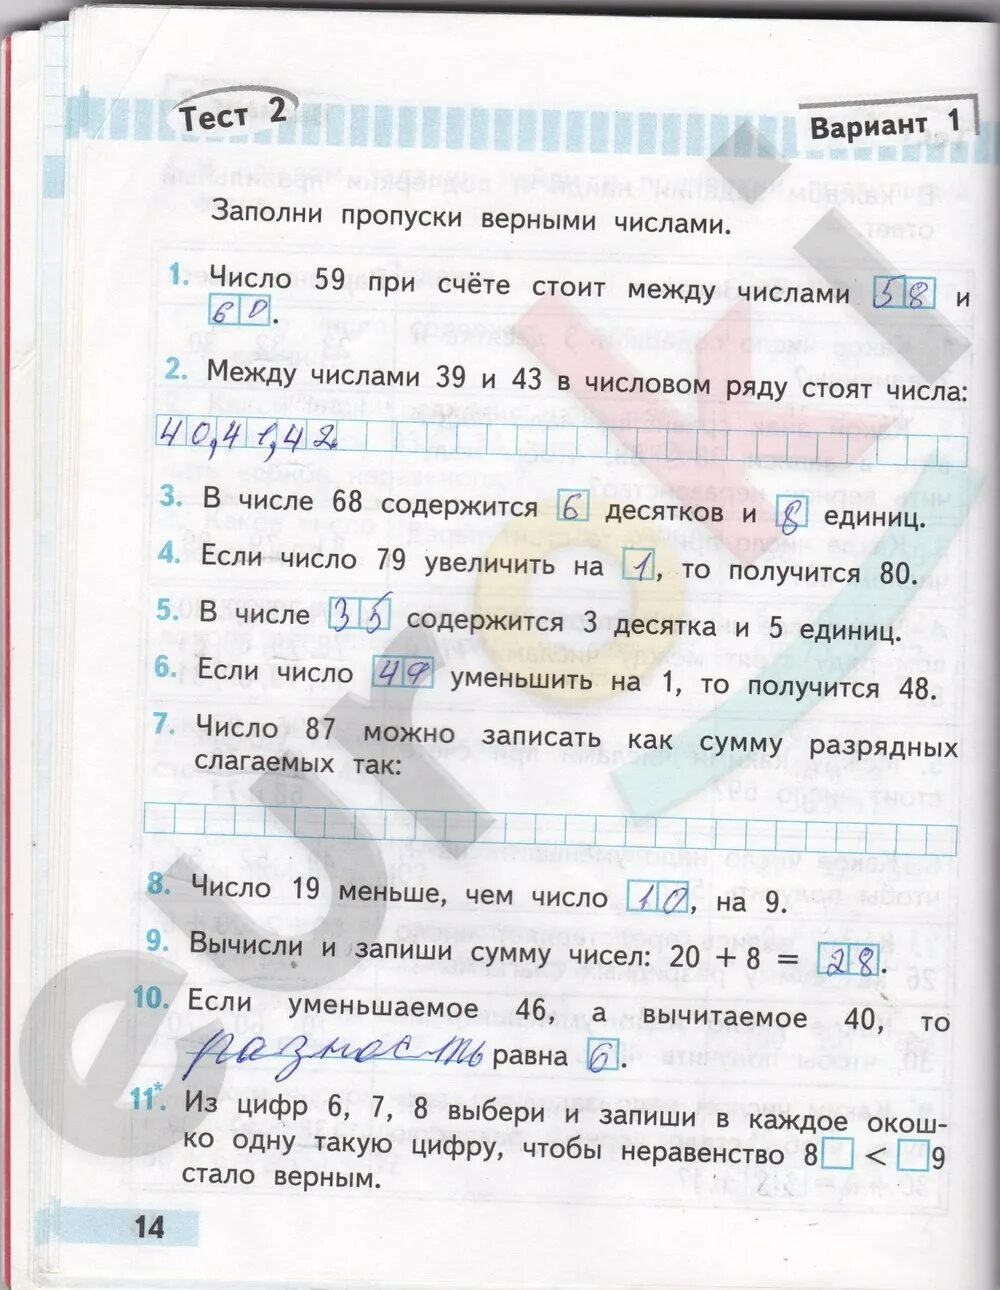 Тест 2
Вариант 1
Заполни пропуски верными числами.
1. Число 59 при счёте стоит между числами 58 и
60.
2. Между числами 39 и 43 в числовом ряду стоят числа:
40,41,42.
3. В числе 68 содержится 6 десятков и 8 единиц.
4. Если число 79 увеличить на 1, то получится 80.
5. В числе 35 содержится 3 десятка и 5 единиц.
6. Если число 49 уменьшить на 1, то получится 48.
7. Число 87 можно записать как сумму разрядных
слагаемых так:
8. Число 19 меньше, чем число 10, на 9.
9. Вычисли и запиши сумму чисел: 20 + 8 = 28.
10. Если уменьшаемое 46, а вычитаемое 40, то
разность равна 6.
11*. Из цифр 6, 7, 8 выбери и запиши в каждое окош-
ко одну такую цифру, чтобы неравенство 8□ < □9
стало верным.
14
euroki